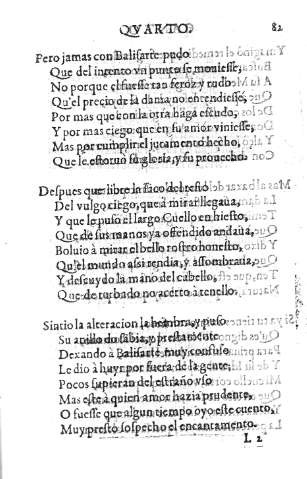 QVARTO. 82
Pero jamas con Balisarte pudo
Que del ingenio vn punto se mouiesse,
No porque el fuesse tan feroz y rudo
Qu'el precio de la dama no entendiesse,
Por mas que con la otra haga escudo,
Y por mas ciego que en su amor viniesse,
Mas por cumplir el juramento hecho,
Que le estoruò su glesia, y su prouecho.
Despues que libre la saco del resto
Del vulgo ciego, que a mirar llegaua,
Y que le puso el largo Cuello en hiesto,
Que de sus manos ya offendido andaua,
Boluio à mirar el bello rostro honesto,
Qu'el mundo assi rendia, y assombraua,
Y descuydo la mano del cabello,
Que de turbado no acerto à tenello.
Siatio la alteracion la hembra, y puso
Su anillo do sabia, y prestamente
Dexando à Balisarte muy confuso
Le dio à huyr por fuera de la gente,
Pocos supieran del estraño vso
Mas este à quien amor hazia prudente,
O fuesse que algun tiempo oyo este cuento,
Muy presto sospecho el encantamento.
L 2